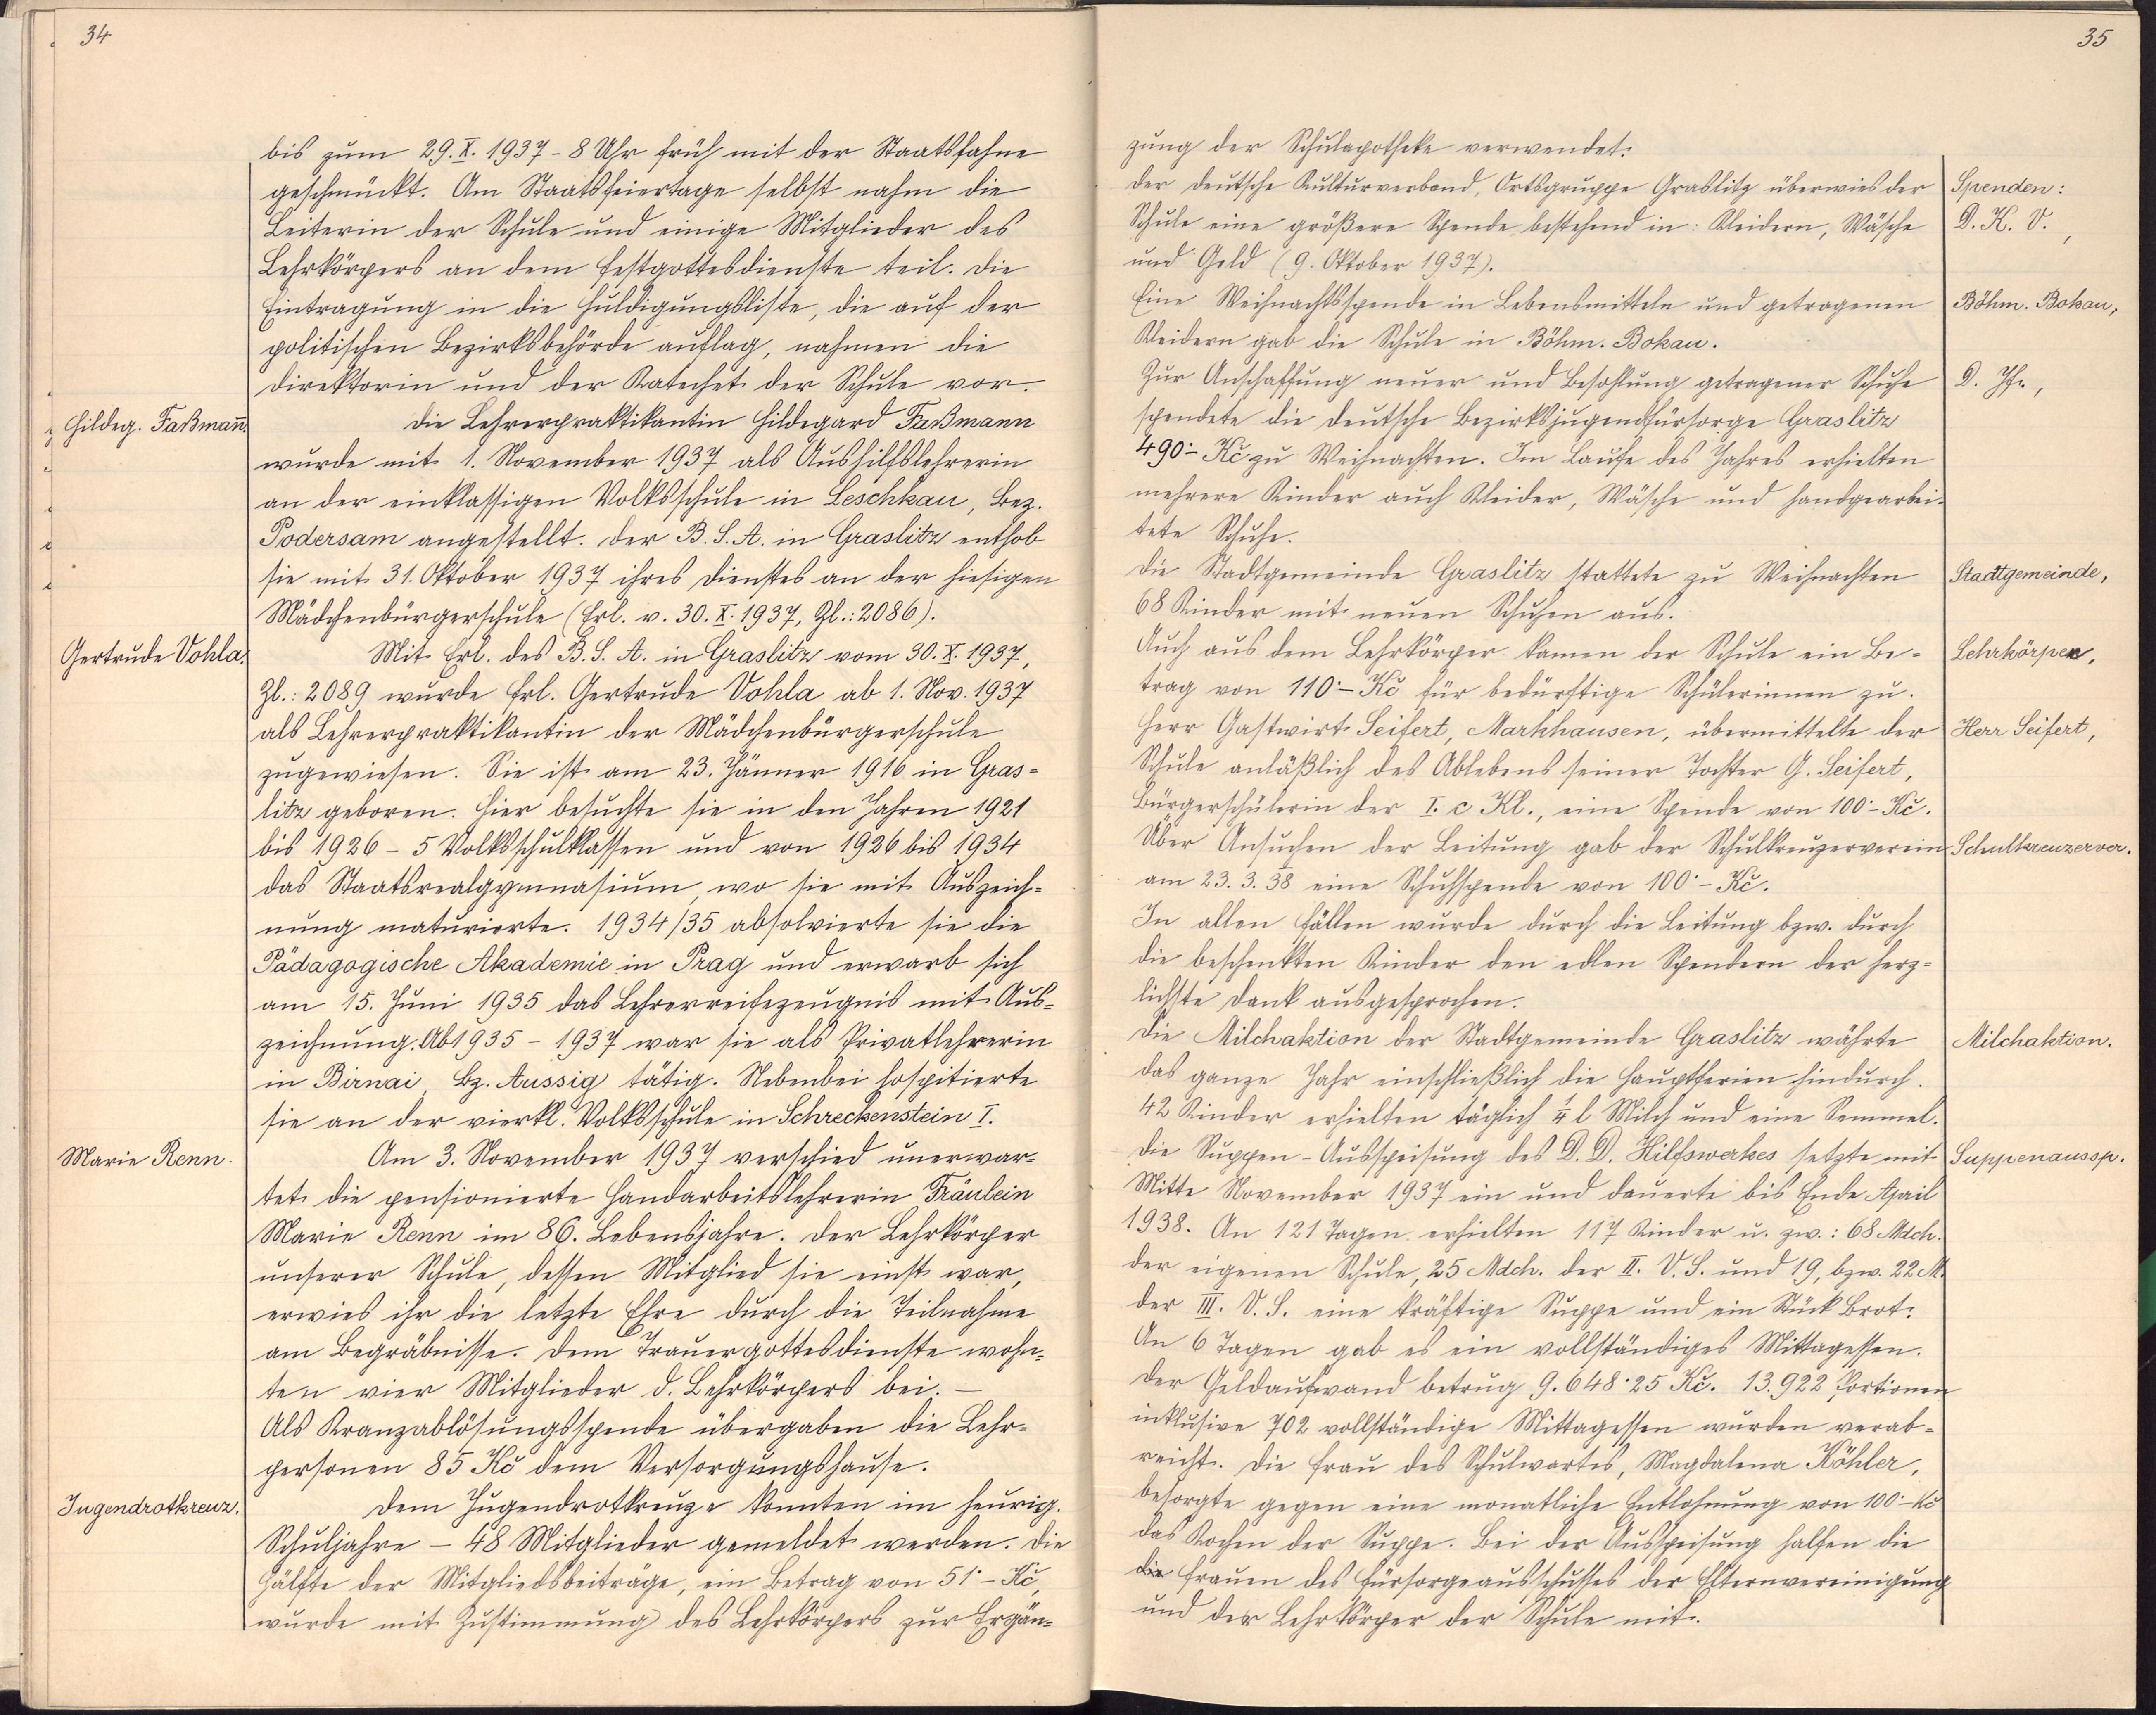 34
bis zum 29.X.1937 - 8 Uhr früh mit der Staatsfahne
geschmückt. Am Staatsfeiertage selbst nahm die
Leiterin der Schule und einige Mitglieder des
Lehrkörpers an dem Festgottesdienste teil. Die
Eintragung in die Huldigungsliste, die auf der
politischen Bezirksbehörde auflag, nahmen die
Direktorin und der Katechet der Schule vor.
Hildeg. Faßmann.
Die Lehrerpraktikantin Hildegard Faßmann
wurde mit 1. November 1937 als Aushilfslehrerin
an der einklassigen Volksschule in Leschkau, Bez.
Podersam angestellt. Der B.S.A. in Graslitz enthob
sie mit 31. Oktober 1937 ihres Dienstes an der hiesigen
Mädchenbürgerschule (Erl. v. 30.X.1937, Zl.: 2086).
Gertrude Vohla.
Mit Erl. des B.S.A. in Graslitz vom 30.X.1937,
Zl.: 2089 wurde Frl. Gertrude Vohla ab 1. Nov. 1937
als Lehrerpraktikantin der Mädchenbürgerschule
zugewiesen. Sie ist am 23. Jänner 1916 in Gras=
litz geboren. Hier besuchte sie in den Jahren 1921
bis 1926 - 5 Volksschulklassen und von 1926 bis 1934
das Staatsrealgymnasium, wo sie mit Auszeich=
nung maturierte. 1934/35 absolvierte sie die
Pädagogische Akademie in Prag und erwarb sich
am 15. Juni 1935 das Lehrerreifezeugnis mit Aus=
zeichnung. Ab 1935 - 1937 war sie als Privatlehrerin
in Birnai, Bz. Aussig tätig. Nebenbei hospitierte
sie an der vierkl. Volksschule in Schreckenstein I.
Marie Renn.
Am 3. November 1937 verschied unerwar=
tet die pensionierte Handarbeitslehrerin Fräulein
Marie Renn im 86. Lebensjahre. Der Lehrkörper
unserer Schule, dessen Mitglied sie einst war,
erwies ihr die letzte Ehre durch die Teilnahme
am Begräbnisse. Dem Trauergottesdienste wohn=
ten vier Mitglieder d. Lehrkörpers bei. -
Als Kranzablösungsspende übergaben die Lehr=
personen 85 Kč dem Versorgungshause.
Jugendrotkreuz.
Dem Jugendrotkreuze konnten im heurig.
Schuljahre - 48 Mitglieder gemeldet werden. Die
Hälfte der Mitgliedsbeiträge, ein Betrag von 51·- Kč,
wurde mit Zustimmung des Lehrkörpers zur Ergän=
35
zung der Schulapotheke verwendet.
Der deutsche Kulturverband, Ortsgruppe Graslitz überwies der
Spenden:
Schule eine größere Spende bestehend in: Kleidern, Wäsche
D. K. V.,
und Geld (9. Oktober 1937).
Eine Weihnachtsspende in Lebensmitteln und getragenen
Böhm. Bokau,
Kleidern gab die Schule in Böhm. Bokau.
Zur Anschaffung neuer und Besohlung getragener Schuhe
D. Jf.,
spendete die deutsche Bezirksjugendfürsorge Graslitz
490·- Kč zu Weihnachten. Im Laufe des Jahres erhielten
mehrere Kinder auch Kleider, Wäsche und handgearbei-
tete Schuhe.
Die Stadtgemeinde Graslitz stattete zu Weihnachten
Stadtgemeinde,
68 Kinder mit neuen Schuhen aus.
Auch aus dem Lehrkörper kamen der Schule ein Be-
Lehrkörper,
trag von 110·- Kč für bedürftige Schülerinnen zu.
Herr Gastwirt Seifert, Markhausen, übermittelte der
Herr Seifert,
Schule anläßlich des Ablebens seiner Tochter G. Seifert,
Bürgerschülerin der I. c Kl., eine Spende von 100·- Kč.
Über Ansuchen der Leitung gab der Schulkreuzerverein
Schulkreuzerver.
am 23.3.38 eine Schuhspende von 100·- Kč.
In allen Fällen wurde durch die Leitung bzw. durch
die beschenkten Kinder den edlen Spendern der herz=
lichste Dank ausgesprochen.
Die Milchaktion der Stadtgemeinde Graslitz währte
Milchaktion.
das ganze Jahr einschließlich die Hauptferien hindurch.
42 Kinder erhielten täglich ¼ l Milch und eine Semmel.
Die Suppen-Ausspeisung des D. D. Hilfswerkes setzte mit
Suppenaussp.
Mitte November 1937 ein und dauerte bis Ende April
1938. An 121 Tagen erhielten 117 Kinder u. zw.: 68 Mdch.
der eigenen Schule, 25 Mdch. der II. V.S. und 19, bzw. 22 M.
der III. V.S. eine kräftige Suppe und ein Stück Brot.
An 6 Tagen gab es ein vollständiges Mittagessen.
Der Geldaufwand betrug 9.648·25 Kč. 13.922 Portionen
inklusive 702 vollständige Mittagessen wurden verab-
reicht. Die Frau des Schulwartes, Magdalena Köhler,
besorgte gegen eine monatliche Entlohnung von 100·- Kč
das Kochen der Suppe. Bei der Ausspeisung halfen die
die Frauen des Fürsorgeausschusses der Elternvereinigung
und der Lehrkörper der Schule mit.